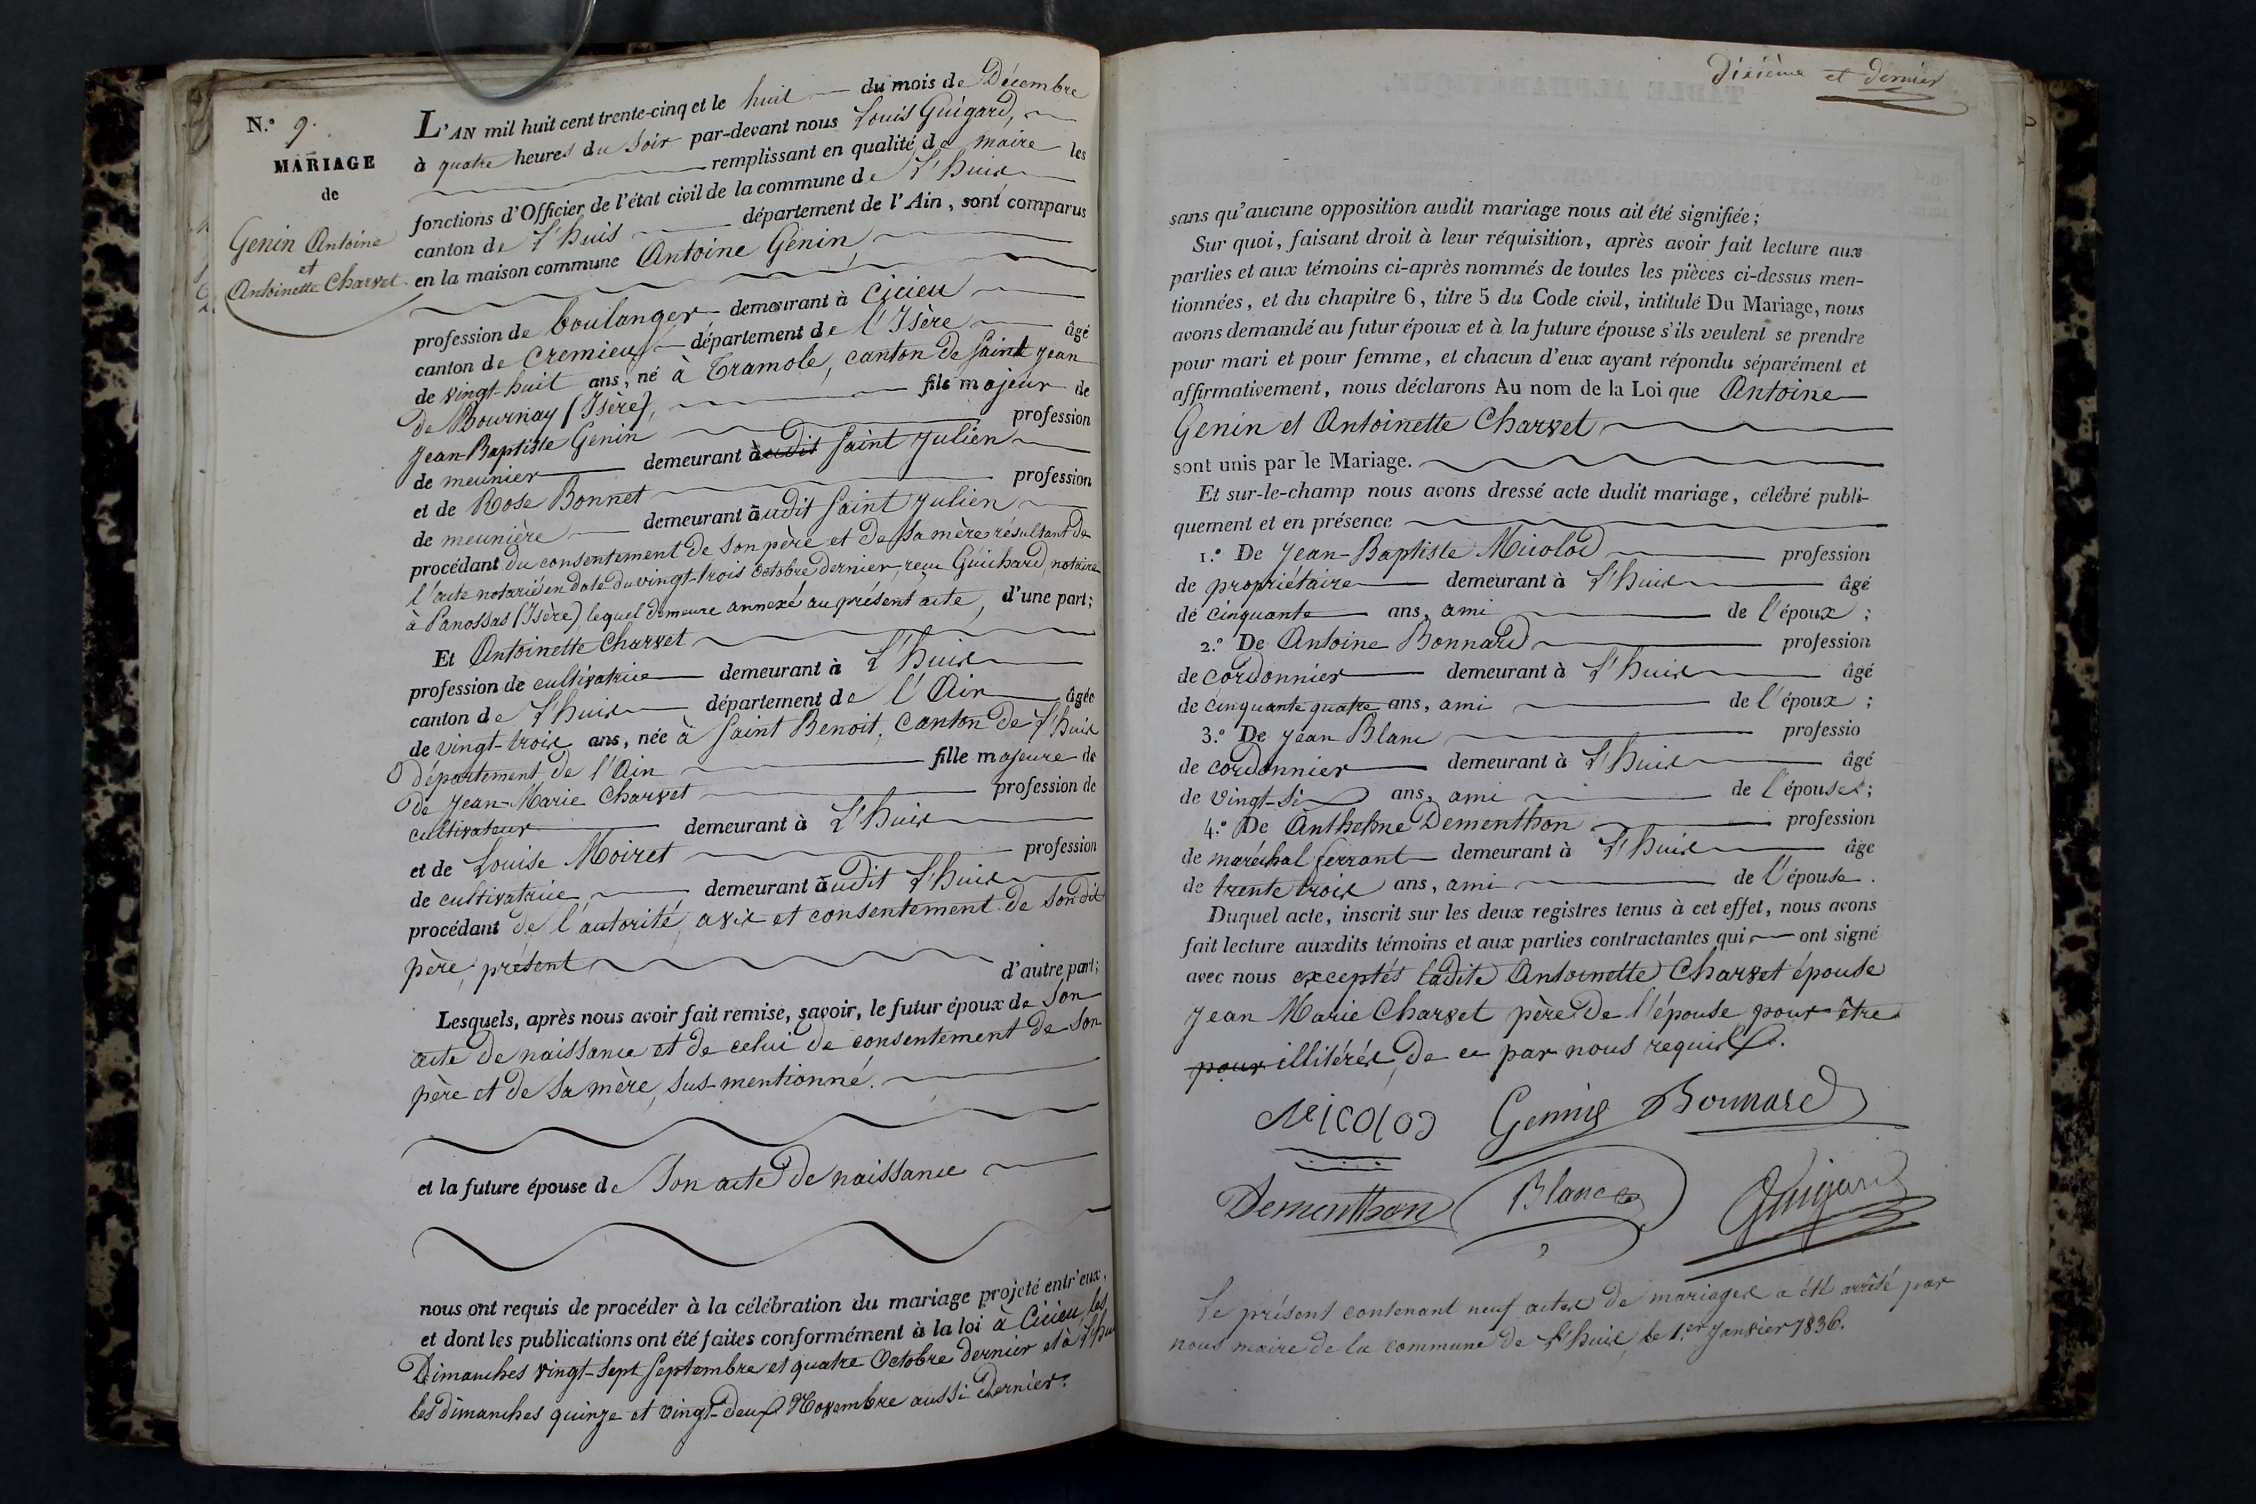 N.° 9.
MARIAGE
de
Genin Antoine
et
Antoinette Charvet
L'AN mil huit cent trente-cinq et le huit du mois de Décembre
à quatre heures du soir par-devant nous Louis Guigard,
remplissant en qualité de maire les
fonctions d'Officier de l'état civil de la commune de L'huis
canton de L'huis département de l'Ain, sont comparus
en la maison commune Antoine Genin,
profession de boulanger demeurant à Cicieu
canton de Cremieux département de l'Isère âgé
de vingt-huit ans, né à Tramole, canton de Saint Jean
de Bournay (Isère), fils majeur de
Jean-Baptiste Genin profession
de meunier demeurant à udit Saint Julien
et de Rose Bonnet profession
de meunière demeurant audit Saint Julien
procédant du consentement de son père et de sa mère résultant de
l'acte notarié en date du vingt-trois octobre dernier, reçu Guichard, notaire
à Panossas (Isère) lequel demeure annexé au présent acte, d'une part;
Et Antoinette Charvet
profession de cultivatrice demeurant à L'huis
canton de L'huis département de l'Ain âgée
de vingt-trois ans, née à Saint Benoit, canton de L'huis
département de l'Ain fille majeure de
de Jean-Marie Charvet profession de
cultivateur demeurant à L'huis
et de Louise Moiret profession
de cultivatrice demeurant audit L'huis
procédant de l'autorité, avis et consentement de son dit
père, présent d'autre part;
Lesquels, après nous avoir fait remise, savoir, le futur époux de son
acte de naissance et de celui de consentement de son
père et de sa mère, sus-mentionné.
et la future épouse de son acte de naissance
nous ont requis de procéder à la célébration du mariage projeté entr'eux,
et dont les publications ont été faites conformément à la loi à Cicieu, les
Dimanches vingt-sept Septembre et quatre Octobre dernier et à L'hu
les dimanches quinze et vingt-deux Novembre aussi dernier.
dixième et dernier
sans qu'aucune opposition audit mariage nous ait été signifiée;
Sur quoi, faisant droit à leur réquisition, après avoir fait lecture aux
parties et aux témoins ci-après nommés de toutes les pièces ci-dessus men-
tionnées, et du chapitre 6, titre 5 du Code civil, intitulé Du Mariage, nous
avons demandé au futur époux et à la future épouse s'ils veulent se prendre
pour mari et pour femme, et chacun d'eux ayant répondu séparément et
affirmativement, nous déclarons Au nom de la Loi que Antoine
Genin et Antoinette Charvet
sont unis par le Mariage.
Et sur-le-champ nous avons dressé acte dudit mariage, célébré publi-
quement et en présence
1.° De Jean-Baptiste Micolod profession
de propriétaire demeurant à L'huis âgé
de cinquante ans, ami de l'époux;
2.° De Antoine Bonnard profession
de cordonnier demeurant à L'huis âgé
de cinquante quatre ans, ami de l'époux;
3.° De Jean Blanc professio
de cordonnier demeurant à L'huis âgé
de vingt-six ans, ami de l'épouse;
4.° De Anthelme Dementhon profession
de maréchal ferrant demeurant à L'huis âge
de trente trois ans, ami de l'épouse.
Duquel acte, inscrit sur les deux registres tenus à cet effet, nous avons
fait lecture auxdits témoins et aux parties contractantes qui ont signé
avec nous exceptés ladite Antoinette Charvet épouse
Jean Marie Charvet père de l'épouse pour être
pour illitérés, de ce par nous requis.
Micolod Genin Bonnard
Dementhon Blanc Guigard
Le présent contenant neuf actes de mariages a été arrêté par
nous maire de la commune de L'huis, le 1.er Janvier 1836.